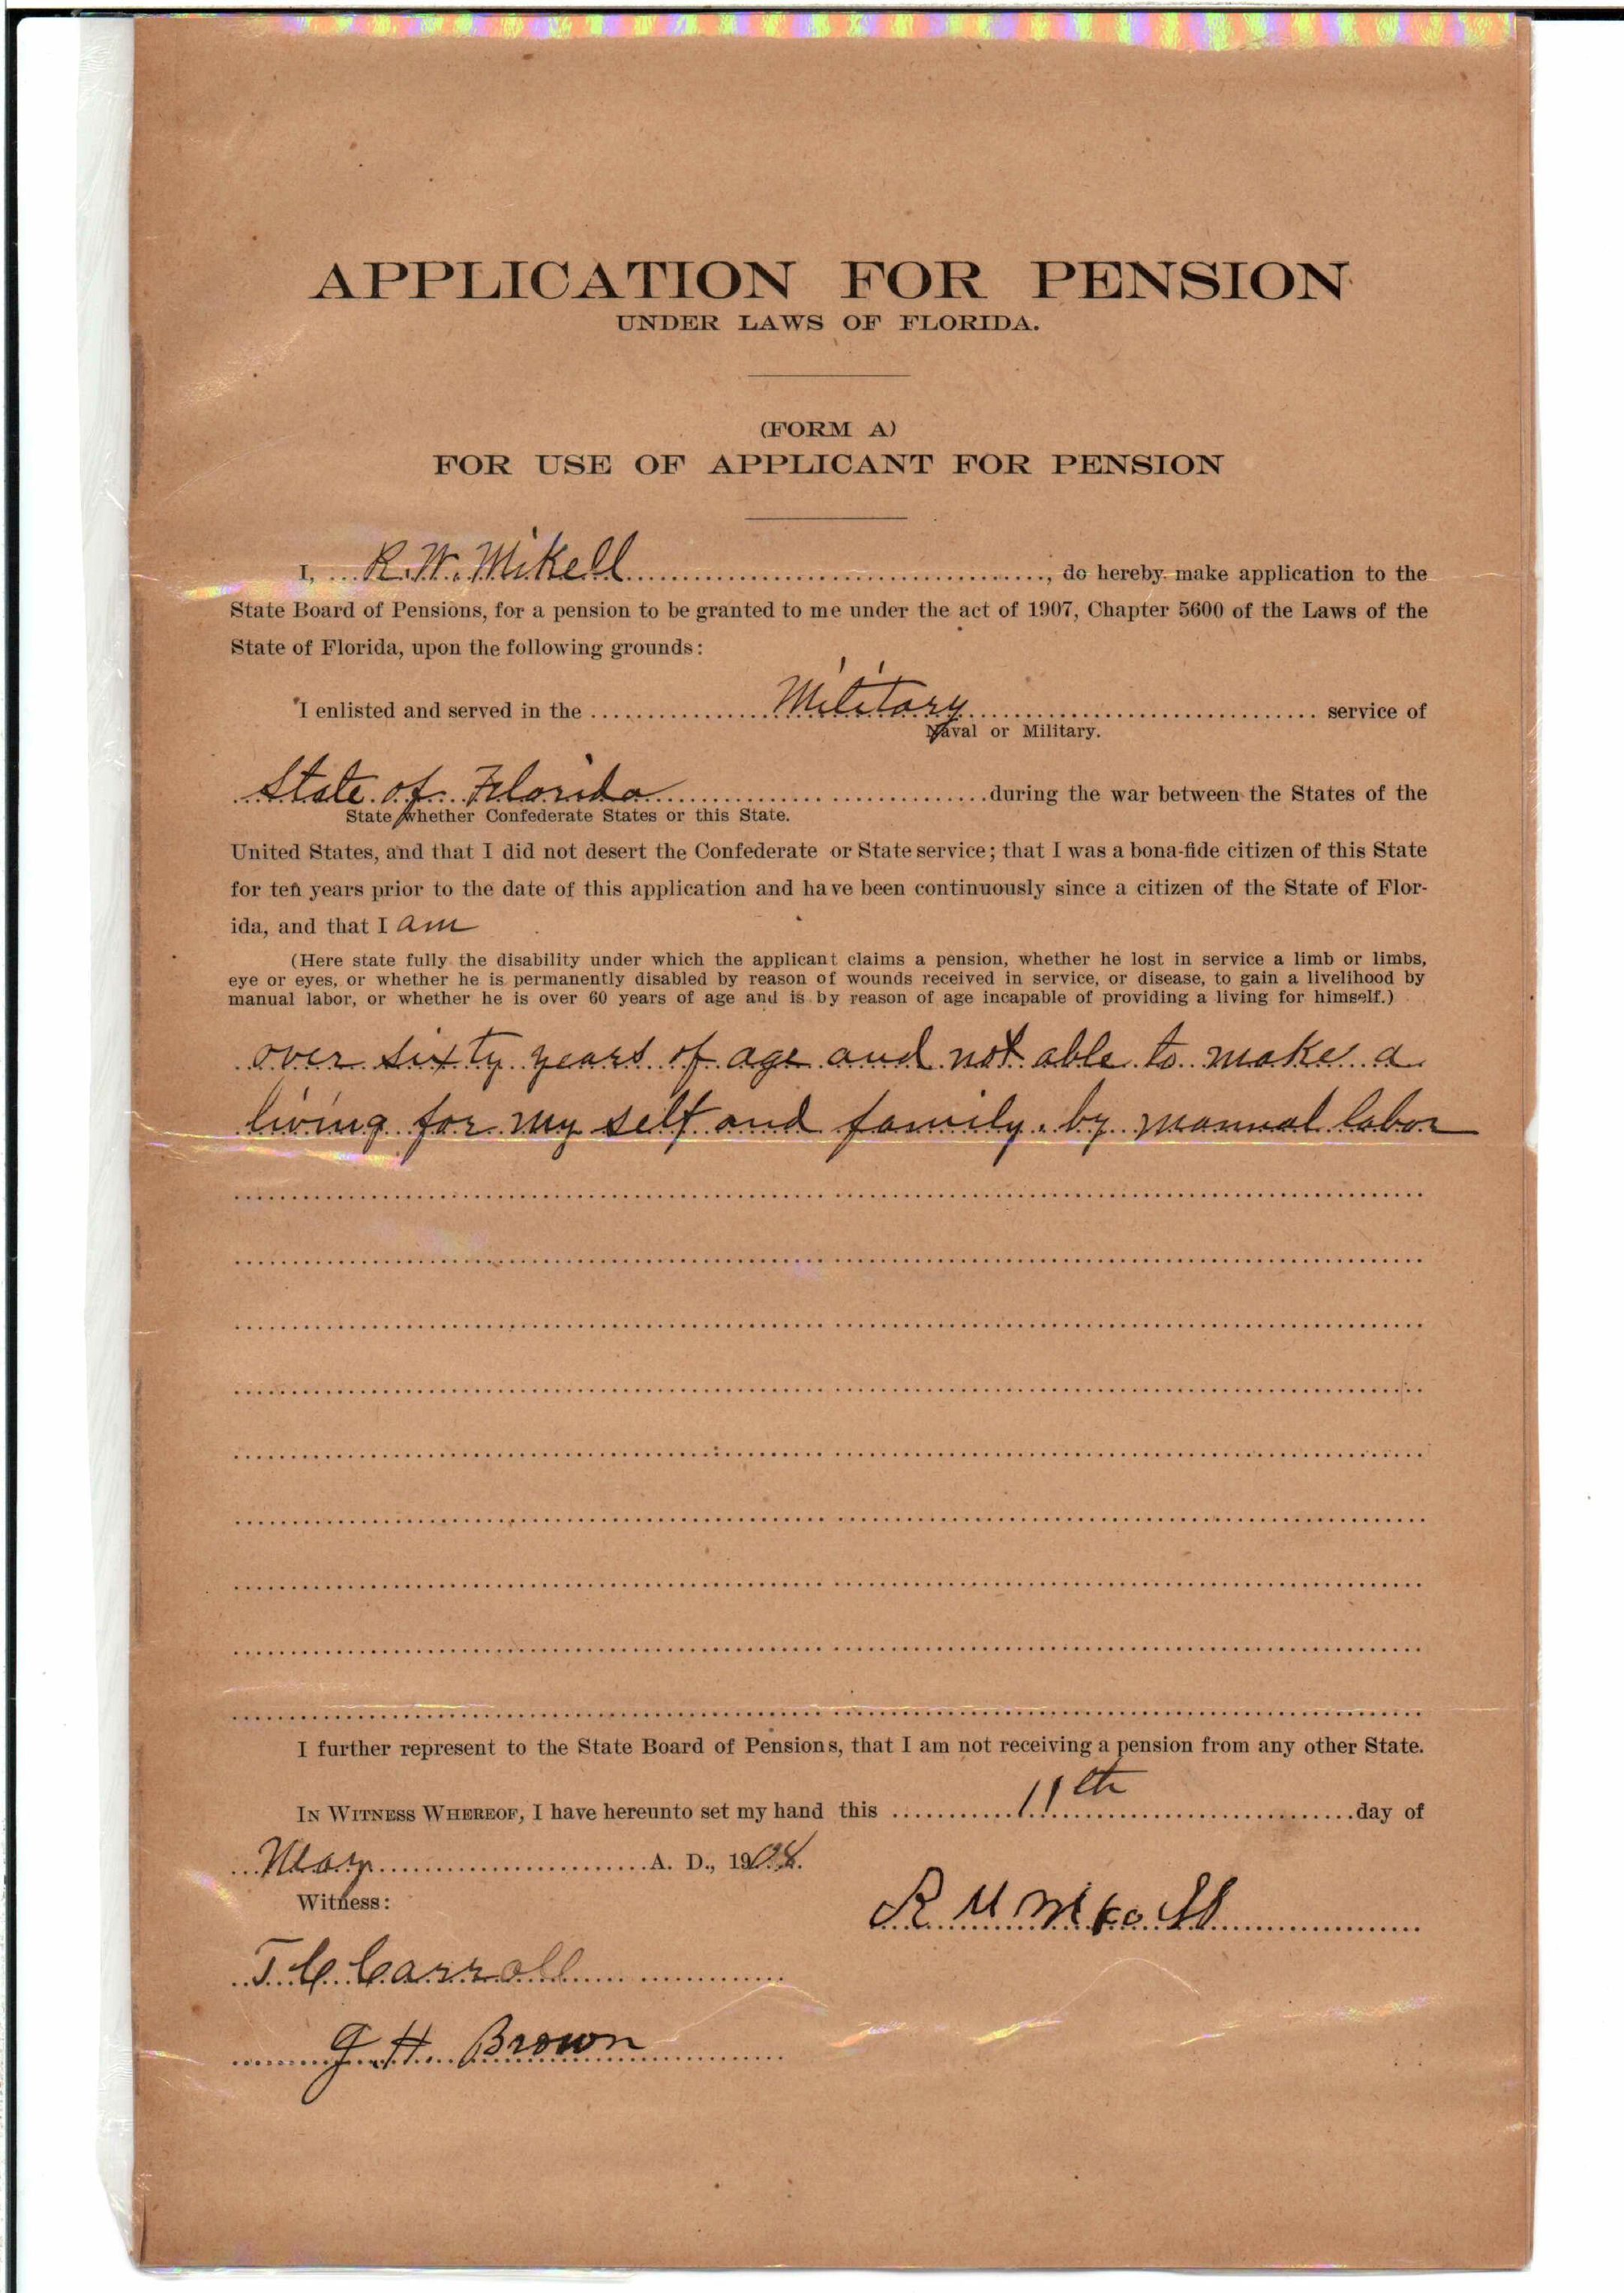 APPLICATION FOR PENSION
UNDER LAWS OF FLORIDA.
(FORM A)
FOR USE OF APPLICANT FOR PENSION
I, R. W. Mikell, do hereby make application to the
State Board of Pensions, for a pension to be granted to me under the act of 1907, Chapter 5600 of the Laws of the
State of Florida, upon the following grounds:
I enlisted and served in the Military service of
Naval or Military.
State of Florida during the war between the States of the
State whether Confederate States or this State.
United States, and that I did not desert the Confederate or State service; that I was a bona-fide citizen of this State
for ten years prior to the date of this application and have been continuously since a citizen of the State of Flor-
ida, and that I am
(Here state fully the disability under which the applicant claims a pension, whether he lost in service a limb or limbs,
eye or eyes, or whether he is permanently disabled by reason of wounds received in service, or disease, to gain a livelihood by
manual labor, or whether he is over 60 years of age and is by reason of age incapable of providing a living for himself.)
over sixty years of age and not able to make a
living for my self and family. by manual labor
I further represent to the State Board of Pensions, that I am not receiving a pension from any other State.
IN WITNESS WHEREOF, I have hereunto set my hand this 11th day of
May A. D., 1908.
Witness:
R
T. C. Carroll
G. H. Brown